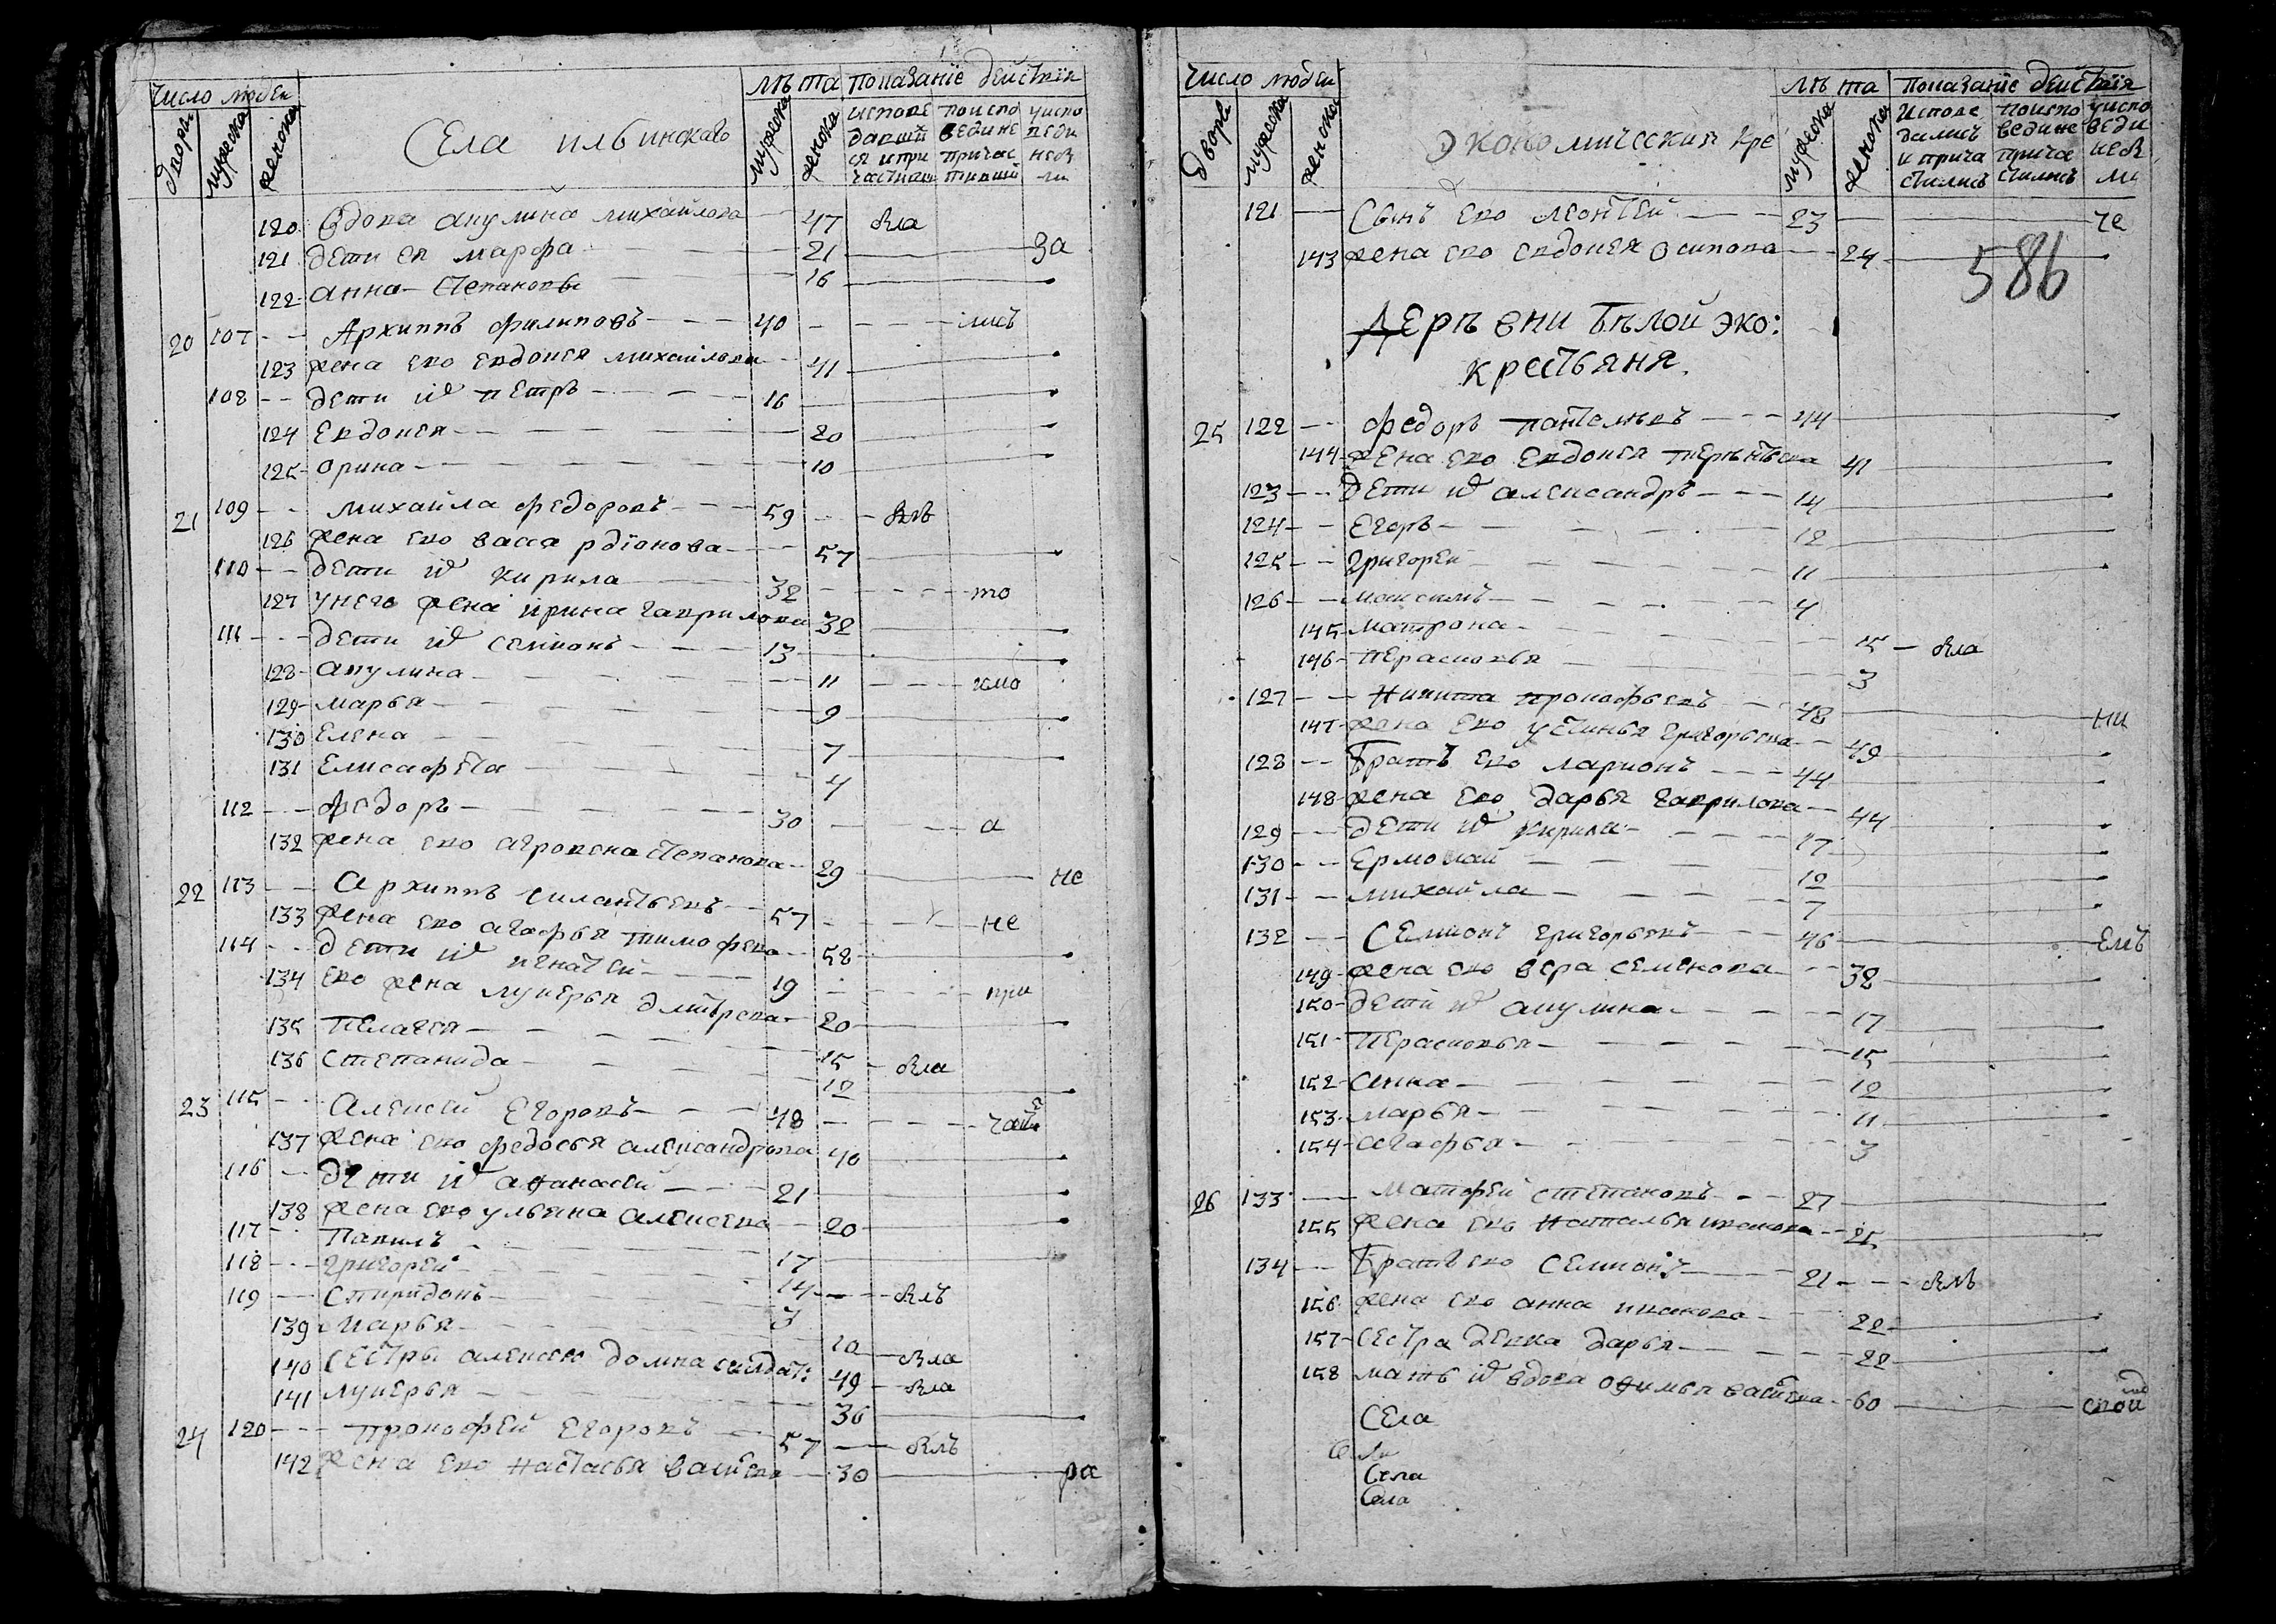 Число людеи
лѣта показанїе действїя
дворы мужеска женска
Села ильинскаго
мужеска женска
исповедавшияся и причастившия
поисповедине причастившии
уисповеди небыли
120 Вдова акулина михайлова 47 вла
121 дети ея марфа 21 за
122 анна степановы 16
20 107 Архиппъ филиповъ 40 лисъ
123 жена ево евдокея михайлова 41
108 дети их петръ 16
124 Евдокея 20
125 орина 10
21 109 михайла федоровъ 59 влъ
126 жена ево васса рдїонова 57
110 дети их кирила 32 то
127 унего жена ирина гаврилова 32
111 дети их семионъ 13
128 акулина 11 кмо
129 марья 9
130 Елена 7
131 Елисафета 4
112 федоръ 30 а
132 жена ево агровена степанова 29 не
22 113 Архиппъ силантьевъ 57 не
133 жена ево агафья тимофева 58
114 дети их игнатеи 19 при
134 ево жена лукерья дмитрева 20
135 пелагея 15 вла
136 степанида 12
23 115 Алексеи Егоровъ 48
137 жена ево федосья александрова 40
116 дети их афанасеи 21
138 жена ево ульяна алексева 20
117 павилъ 17
118 григореи 14 влъ
119 спиридонъ 3
139 марья 10 вла
140 сестры алексею домна солдат: 49 вла
141 лукерья 36
24 120 прокофеи Егоровъ 57 влъ
142 жена ево настасья васильева 30 ра
Число людеи
лѣта показанїе действїя
дворы мужеска женска
экономическия кре
мужеска женска
исповедались и причастились
поисповедине причастились
уисповеди небыли
121 Сынъ ево леонтеи 23 че
143 жена ево евдокея осипова 24
586
Деревни Бѣлой эко:
крестьяня.
25 122 федоръ пантелѣевъ 44
144 жена ево евдокея терентьева 41
123 дети их александръ 14
124 Егоръ 12
125 григореи 11
126 максимъ 4
145 матрона 15 вла
146 перасковья 3
127 Никита прокофьевъ 48 ни
147 жена ево устинья григорьева 49
128 Братъ ево ларионъ 44
148 жена ево дарья гаврилова 44
129 дети их кирила 17
130 Ермолаи 12
131 михайла 7
132 Семионъ григорьевъ 46 емъ
149 жена ево вера семенова 38
150 дети их акулина 17
151 перасковья 15
152 анна 12
153 марья 11
154 агафья 3
26 133 Матфеи степановъ 27
155 жена ево наталья иванова 25
134 Братъ ево Семионъ 21 влъ
156 жена ево анна иванова 22
157 сестра девка дарья 22
158 мать их вдова офимья васильева 60
Села
Села
Села